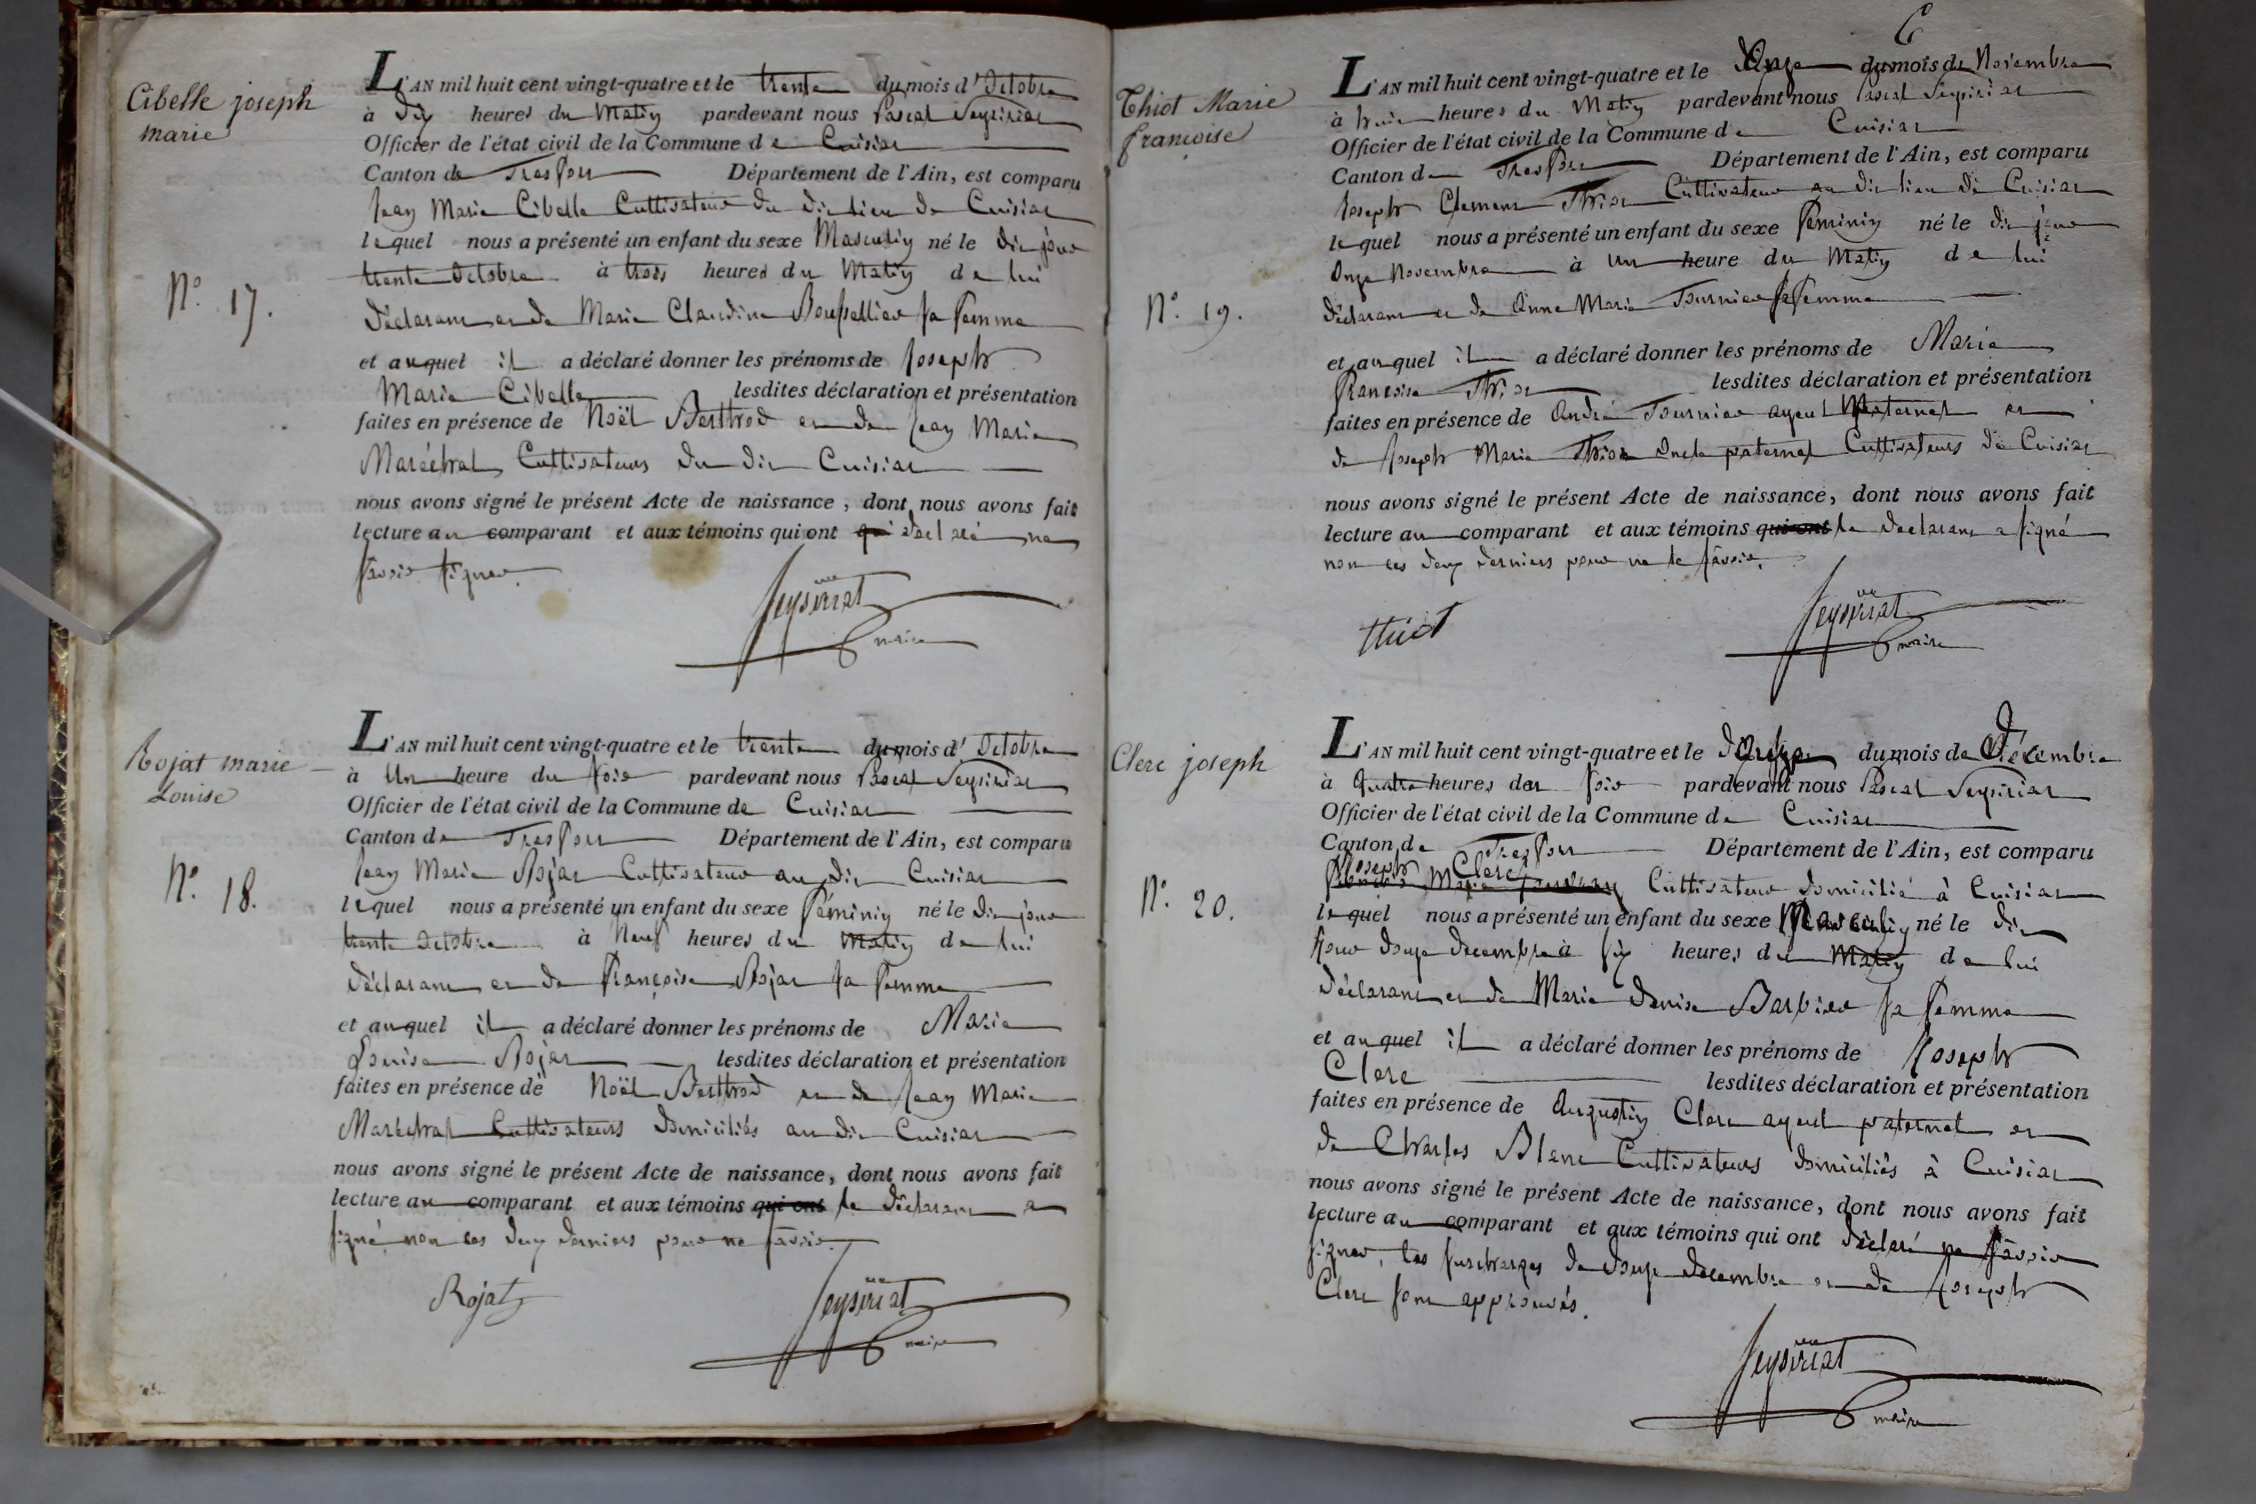 Cibelle joseph
marie
N.° 17.
L'AN mil huit cent vingt-quatre et le trente du mois d'Octobre
à dix heures du Matin pardevant nous Pascal Seysiriat
Officier de l'état civil de la Commune de Cuisiat
Canton de Treffort Département de l'Ain, est comparu
Jean Marie Cibelle Cultivateur du dit lieu de Cuisiat
lequel nous a présenté un enfant du sexe Masculin né le dit jour
trente Octobre à trois heures du Matin de lui
déclarant et de Marie Claudine Boussellier sa femme
et auquel il a déclaré donner les prénoms de Joseph
Marie Cibelle lesdites déclaration et présentation
faites en présence de Noël Berthod et de Jean Marie
Maréchal Cultivateurs du dit Cuisiat
nous avons signé le présent Acte de naissance, dont nous avons fait
lecture au comparant et aux témoins qui ont qui déclaré ne
savoir signer.
Seysiriat
maire
Rojat marie
Louise
N.° 18.
L'AN mil huit cent vingt-quatre et le trente du mois d'Octobre
à Un heure du soir pardevant nous Pascal Seysiriat
Officier de l'état civil de la Commune de Cuisiat
Canton de Treffort Département de l'Ain, est comparu
Jean Marie Rojat Cultivateur au dit Cuisiat
lequel nous a présenté un enfant du sexe féminin né le dit jour
trente octobre à Neuf heures du Matin de lui
déclarant et de Françoise Rojat sa femme
et auquel il a déclaré donner les prénoms de Marie
Louise Rojat lesdites déclaration et présentation
faites en présence de Noël Berthod et de Jean Marie
Maréchal Cultivateurs domiciliés au dit Cuisiat
nous avons signé le présent Acte de naissance, dont nous avons fait
lecture au comparant et aux témoins qui ont le déclarant a
signé non les deux derniers pour ne savoir.
Rojat
Seysiriat
maire
Thiot Marie
françoise
N.° 19.
L'AN mil huit cent vingt-quatre et le Onze du mois de Novembre
à huit heures du Matin pardevant nous Pascal Seysiriat
Officier de l'état civil de la Commune de Cuisiat
Canton de Treffort Département de l'Ain, est comparu
Joseph Clement Thiot Cultivateur au dit lieu de Cuisiat
lequel nous a présenté un enfant du sexe féminin né le dit jour
Onze Novembre à Un heure du Matin de lui
déclarant et de Anne Marie Tournier sa femme
et auquel il a déclaré donner les prénoms de Marie
Françoise Thiot lesdites déclaration et présentation
faites en présence de André Tournier ayeul Maternel et
de Joseph Marie Thiot Oncle paternel Cultivateurs de Cuisiat
nous avons signé le présent Acte de naissance, dont nous avons fait
lecture au comparant et aux témoins qui ont le déclarant a signé
non les deux derniers pour ne le savoir.
thiot
Seysiriat
maire
Clerc joseph
N.° 20.
L'AN mil huit cent vingt-quatre et le douze du mois de Décembre
à Quatre heures du soir pardevant nous Pascal Seysiriat
Officier de l'état civil de la Commune de Cuisiat
Canton de Treffort Département de l'Ain, est comparu
Joseph Clerc Cultivateur domicilié à Cuisiat
lequel nous a présenté un enfant du sexe Masculin né le dit
jour douze decembre à six heures du Matin de lui
déclarant et de Marie Denise Barbier sa femme
et auquel il a déclaré donner les prénoms de Joseph
Clerc lesdites déclaration et présentation
faites en présence de Augustin Clerc ayeul paternel et
de Charles Blanc Cultivateurs domiciliés à Cuisiat
nous avons signé le présent Acte de naissance, dont nous avons fait
lecture au comparant et aux témoins qui ont déclaré ne savoir
signer, les surcharges de douze decembre et de Joseph
Clerc sont approuvés.
Seysiriat
maire